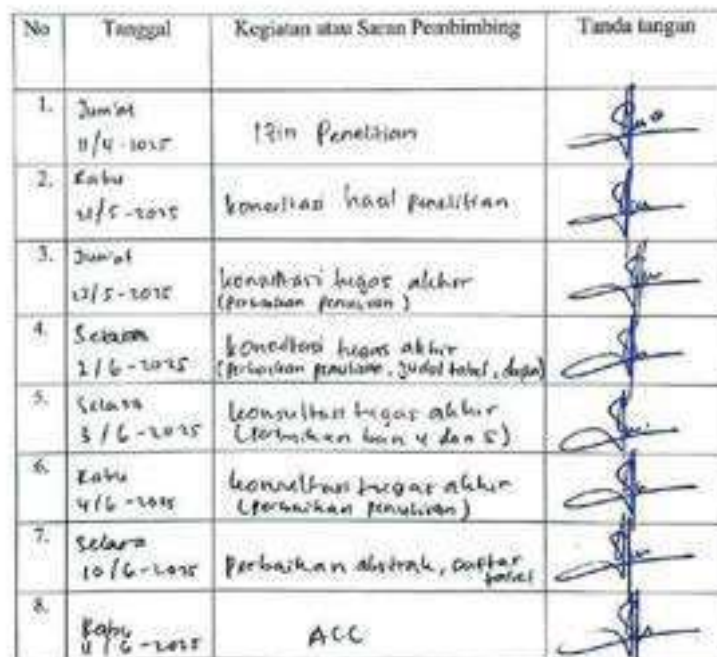 No Tanggal Kegiatan atau Saran Pembimbing Tanda tangan
1. Jum'at
11/4-2025 Izin Penelitian
2. Rabu
21/5-2025 konsultasi hasil penelitian
3. Jum'at
23/5-2025 konsultasi tugas akhir
(perbaikan penulisan)
4. Selasa konsultasi tugas akhir
2/6-2025 (perbaikan penulisan, judul tabel, dapu)
5. Selasa konsultasi tugas akhir
3/6-2025 (perbaikan bab 4 dan 5)
6. Rabu konsultasi tugas akhir
4/6-2025 (perbaikan penulisan)
7. Selasa
10/6-2025 perbaikan abstrak, daftar
tabel
8. Rabu ACC
11/6-2025